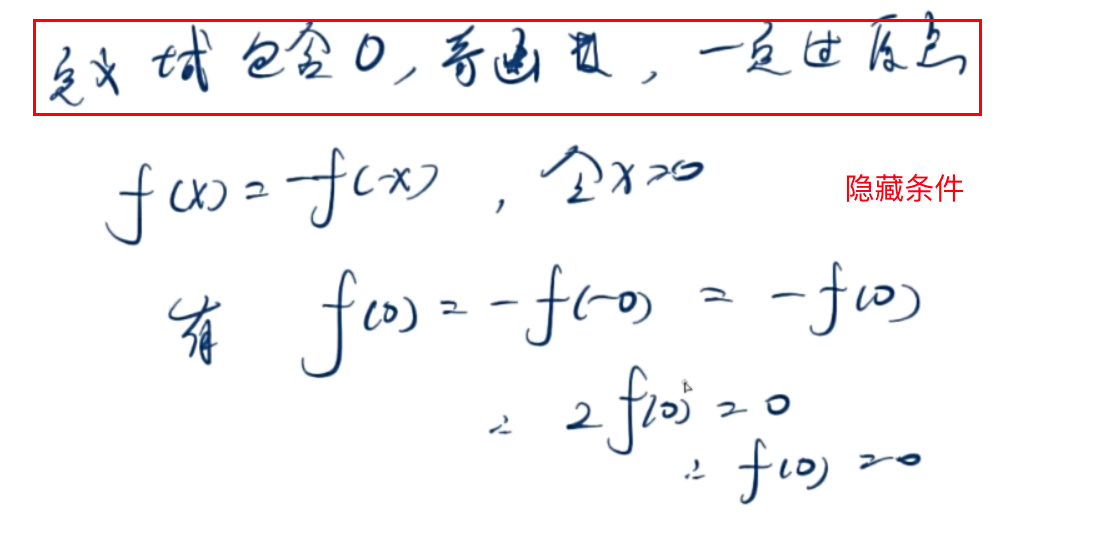 定义域包含0,奇函数,一定过原点
f(x)=-f(-x),令x=0
隐藏条件
有 f(0)=-f(-0)=-f(0)
∴ 2f(0)=0
∴ f(0)=0